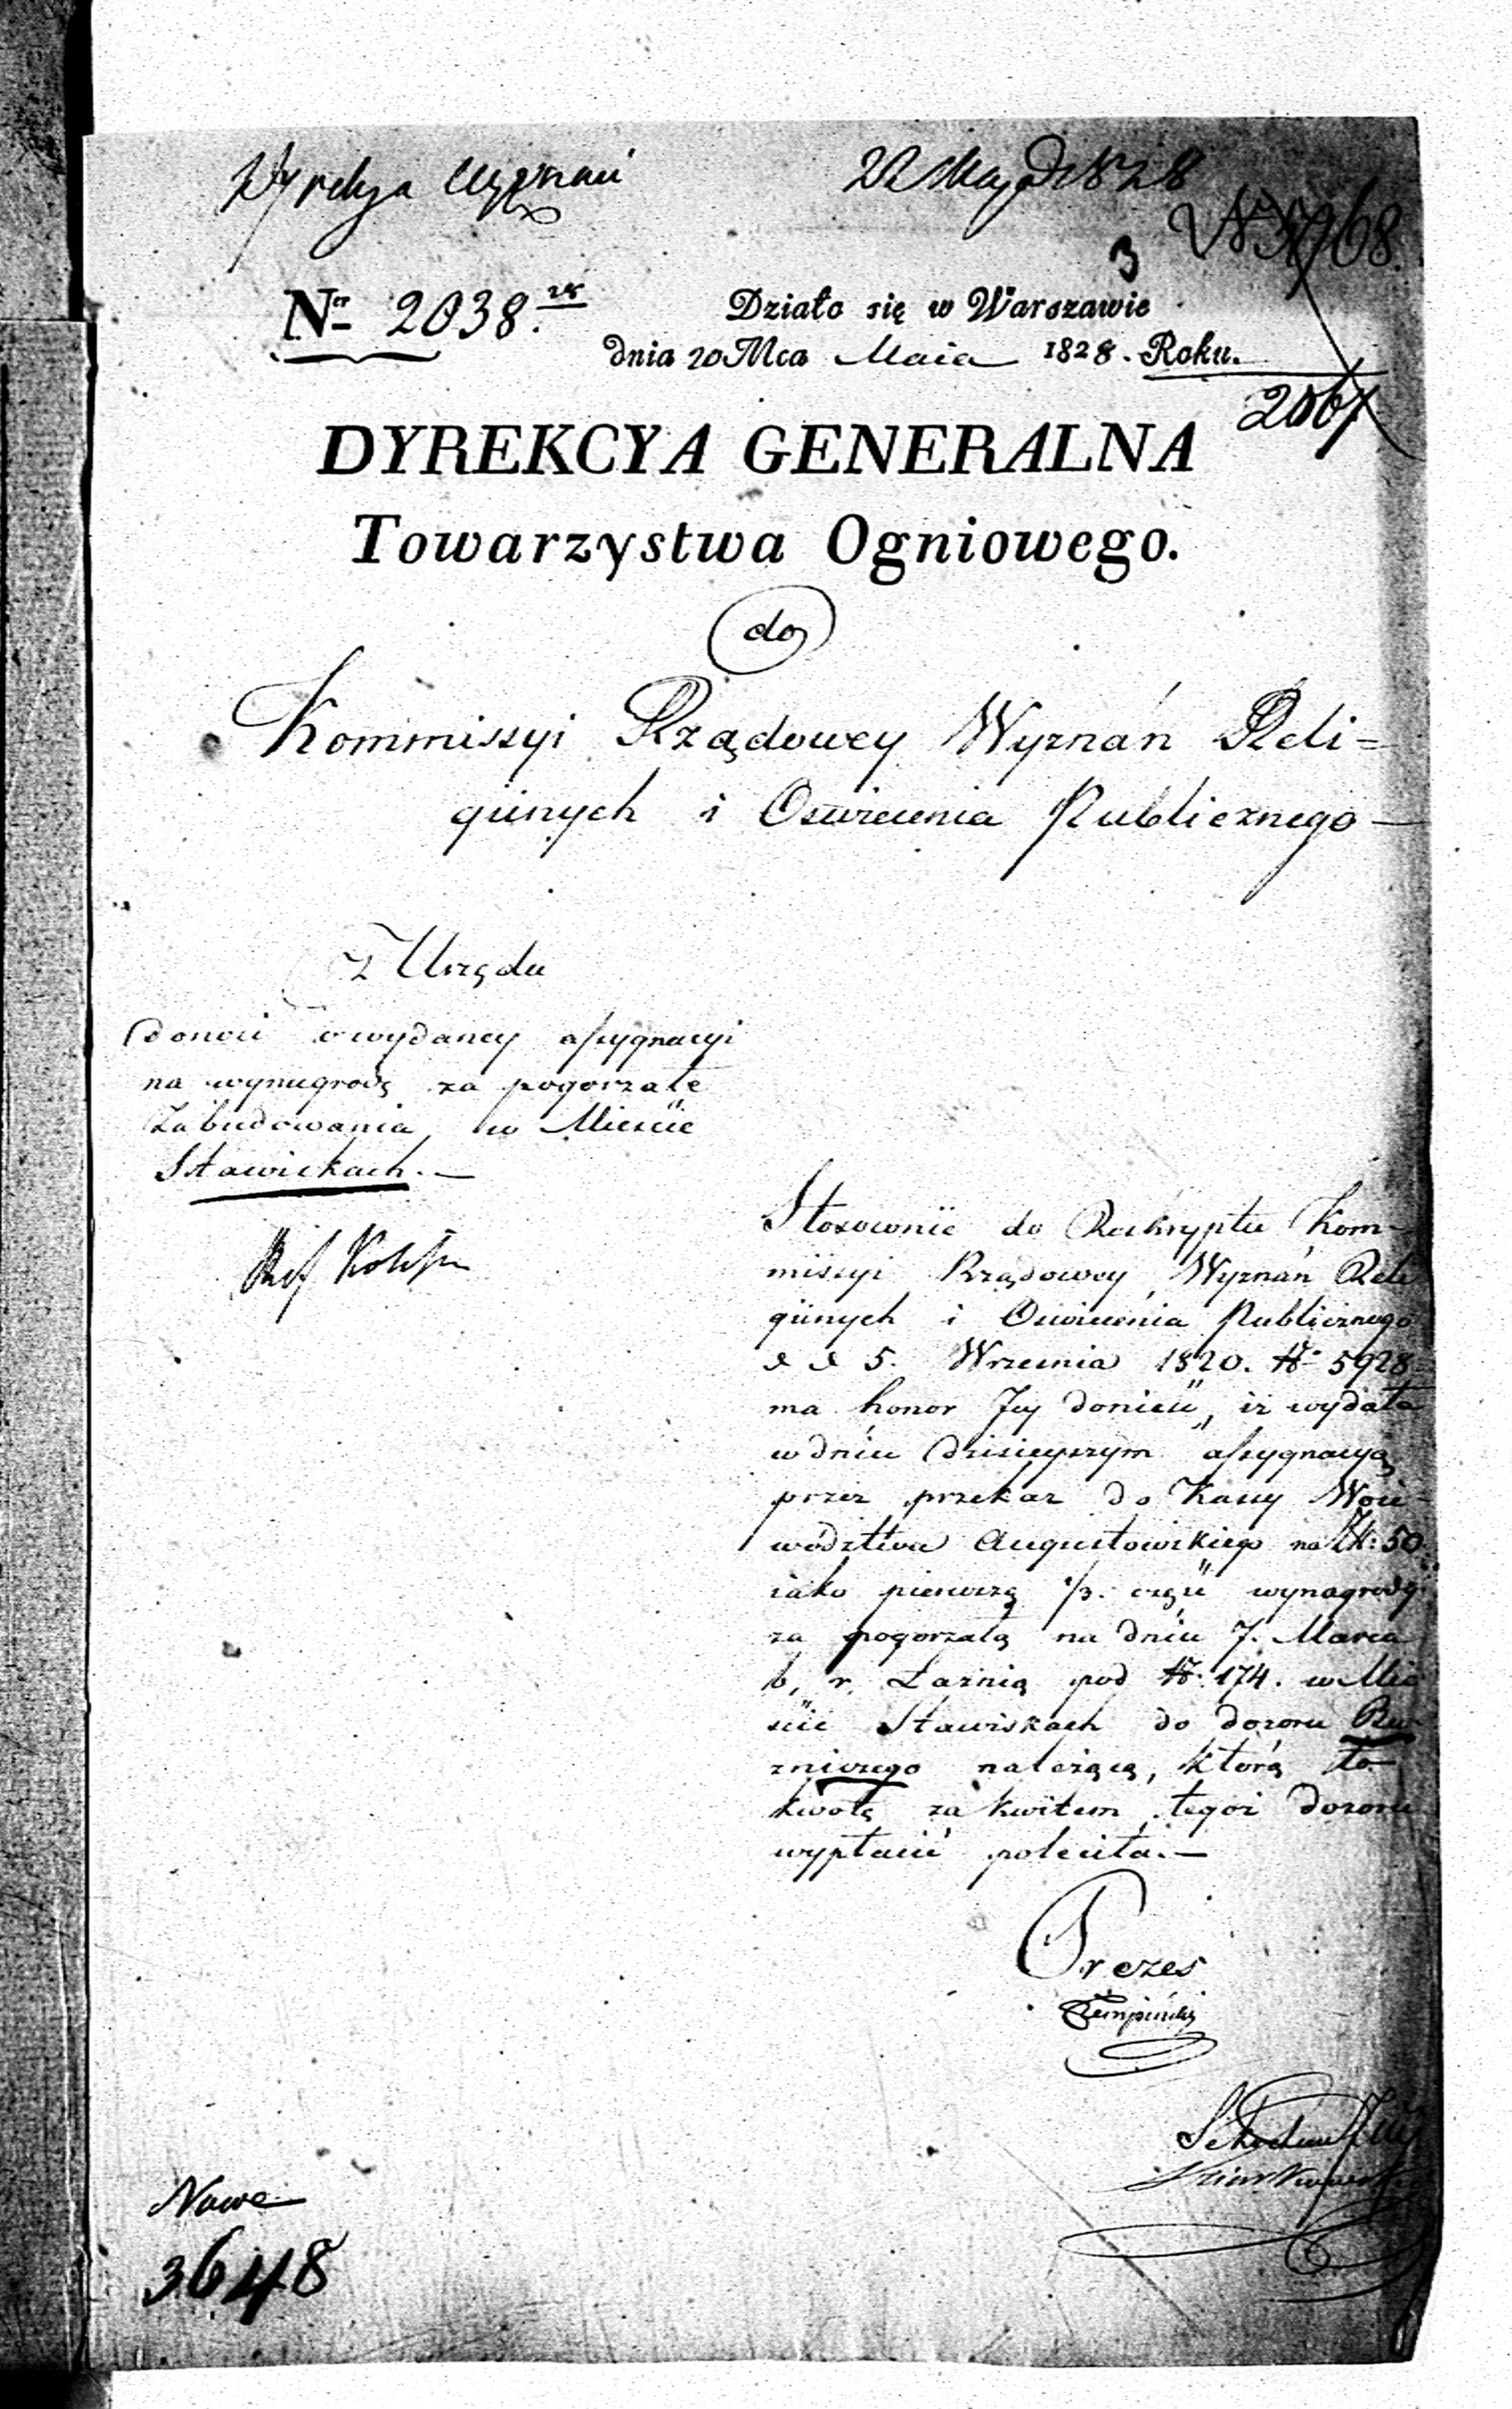 22 Maja 1828
3
Nr 2038.
Działo się w Warszawie
dnia 20 Mca Maia 1828. Roku.
2067
DYREKCYA GENERALNA
Towarzystwa Ogniowego.
do
Kommissyi Rządowey Wyznań Reli=
giinych i Oswiecenia Publicznego
Z Urzędu
donosi o wydaney assygnacyi
na wynagrodę za pogorzałe
Zabudowania w Miescie
Stawiskach.—
Stosownie do Reskryptu Kom-
missyi Rządowey Wyznań Reli
giinych i Oswiecenia Publicznego
d d 5. Wrzesnia 1820. N 5928
ma honor Jey donieść, iz wydała
w dniu dzisieyszym assygnacyą
przez przekaz do Kassy Woie-
wództwa Augustowskiego na Zł: 50
iako pierwszą 1/3. część wynagrody
za pogorzałą na dniu 7. Marca
b. r. Łaznią pod N 174. w Mie
ście Stawiskach do dozoru Bo-
zniczego należącą, którą to
kwotę za kwitem tegoż dozoru
wypłacić poleciła.—
Prezes
Nowe
3648